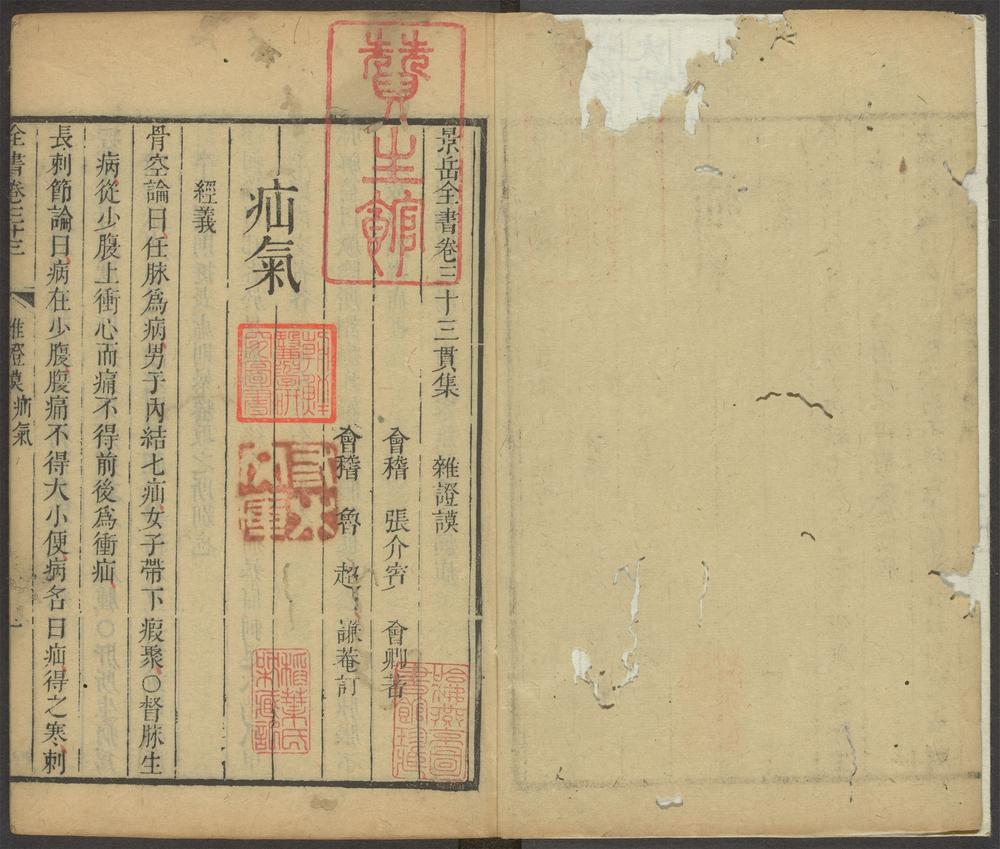 景岳全書卷三十三貫集 雜證謨
會稽 張介賓 會卿著
會稽 魯超 謙菴訂
疝氣
經義
骨空論曰任脉爲病男子內結七疝女子帶下瘕聚○督脉生
病從少腹上衝心而痛不得前後爲衝疝
長刺節論曰病在少腹腹痛不得大小便病名曰疝得之寒刺
全書卷三十三 雜證謨 疝氣 一
贊生館
哈佛燕京圖書館珍藏